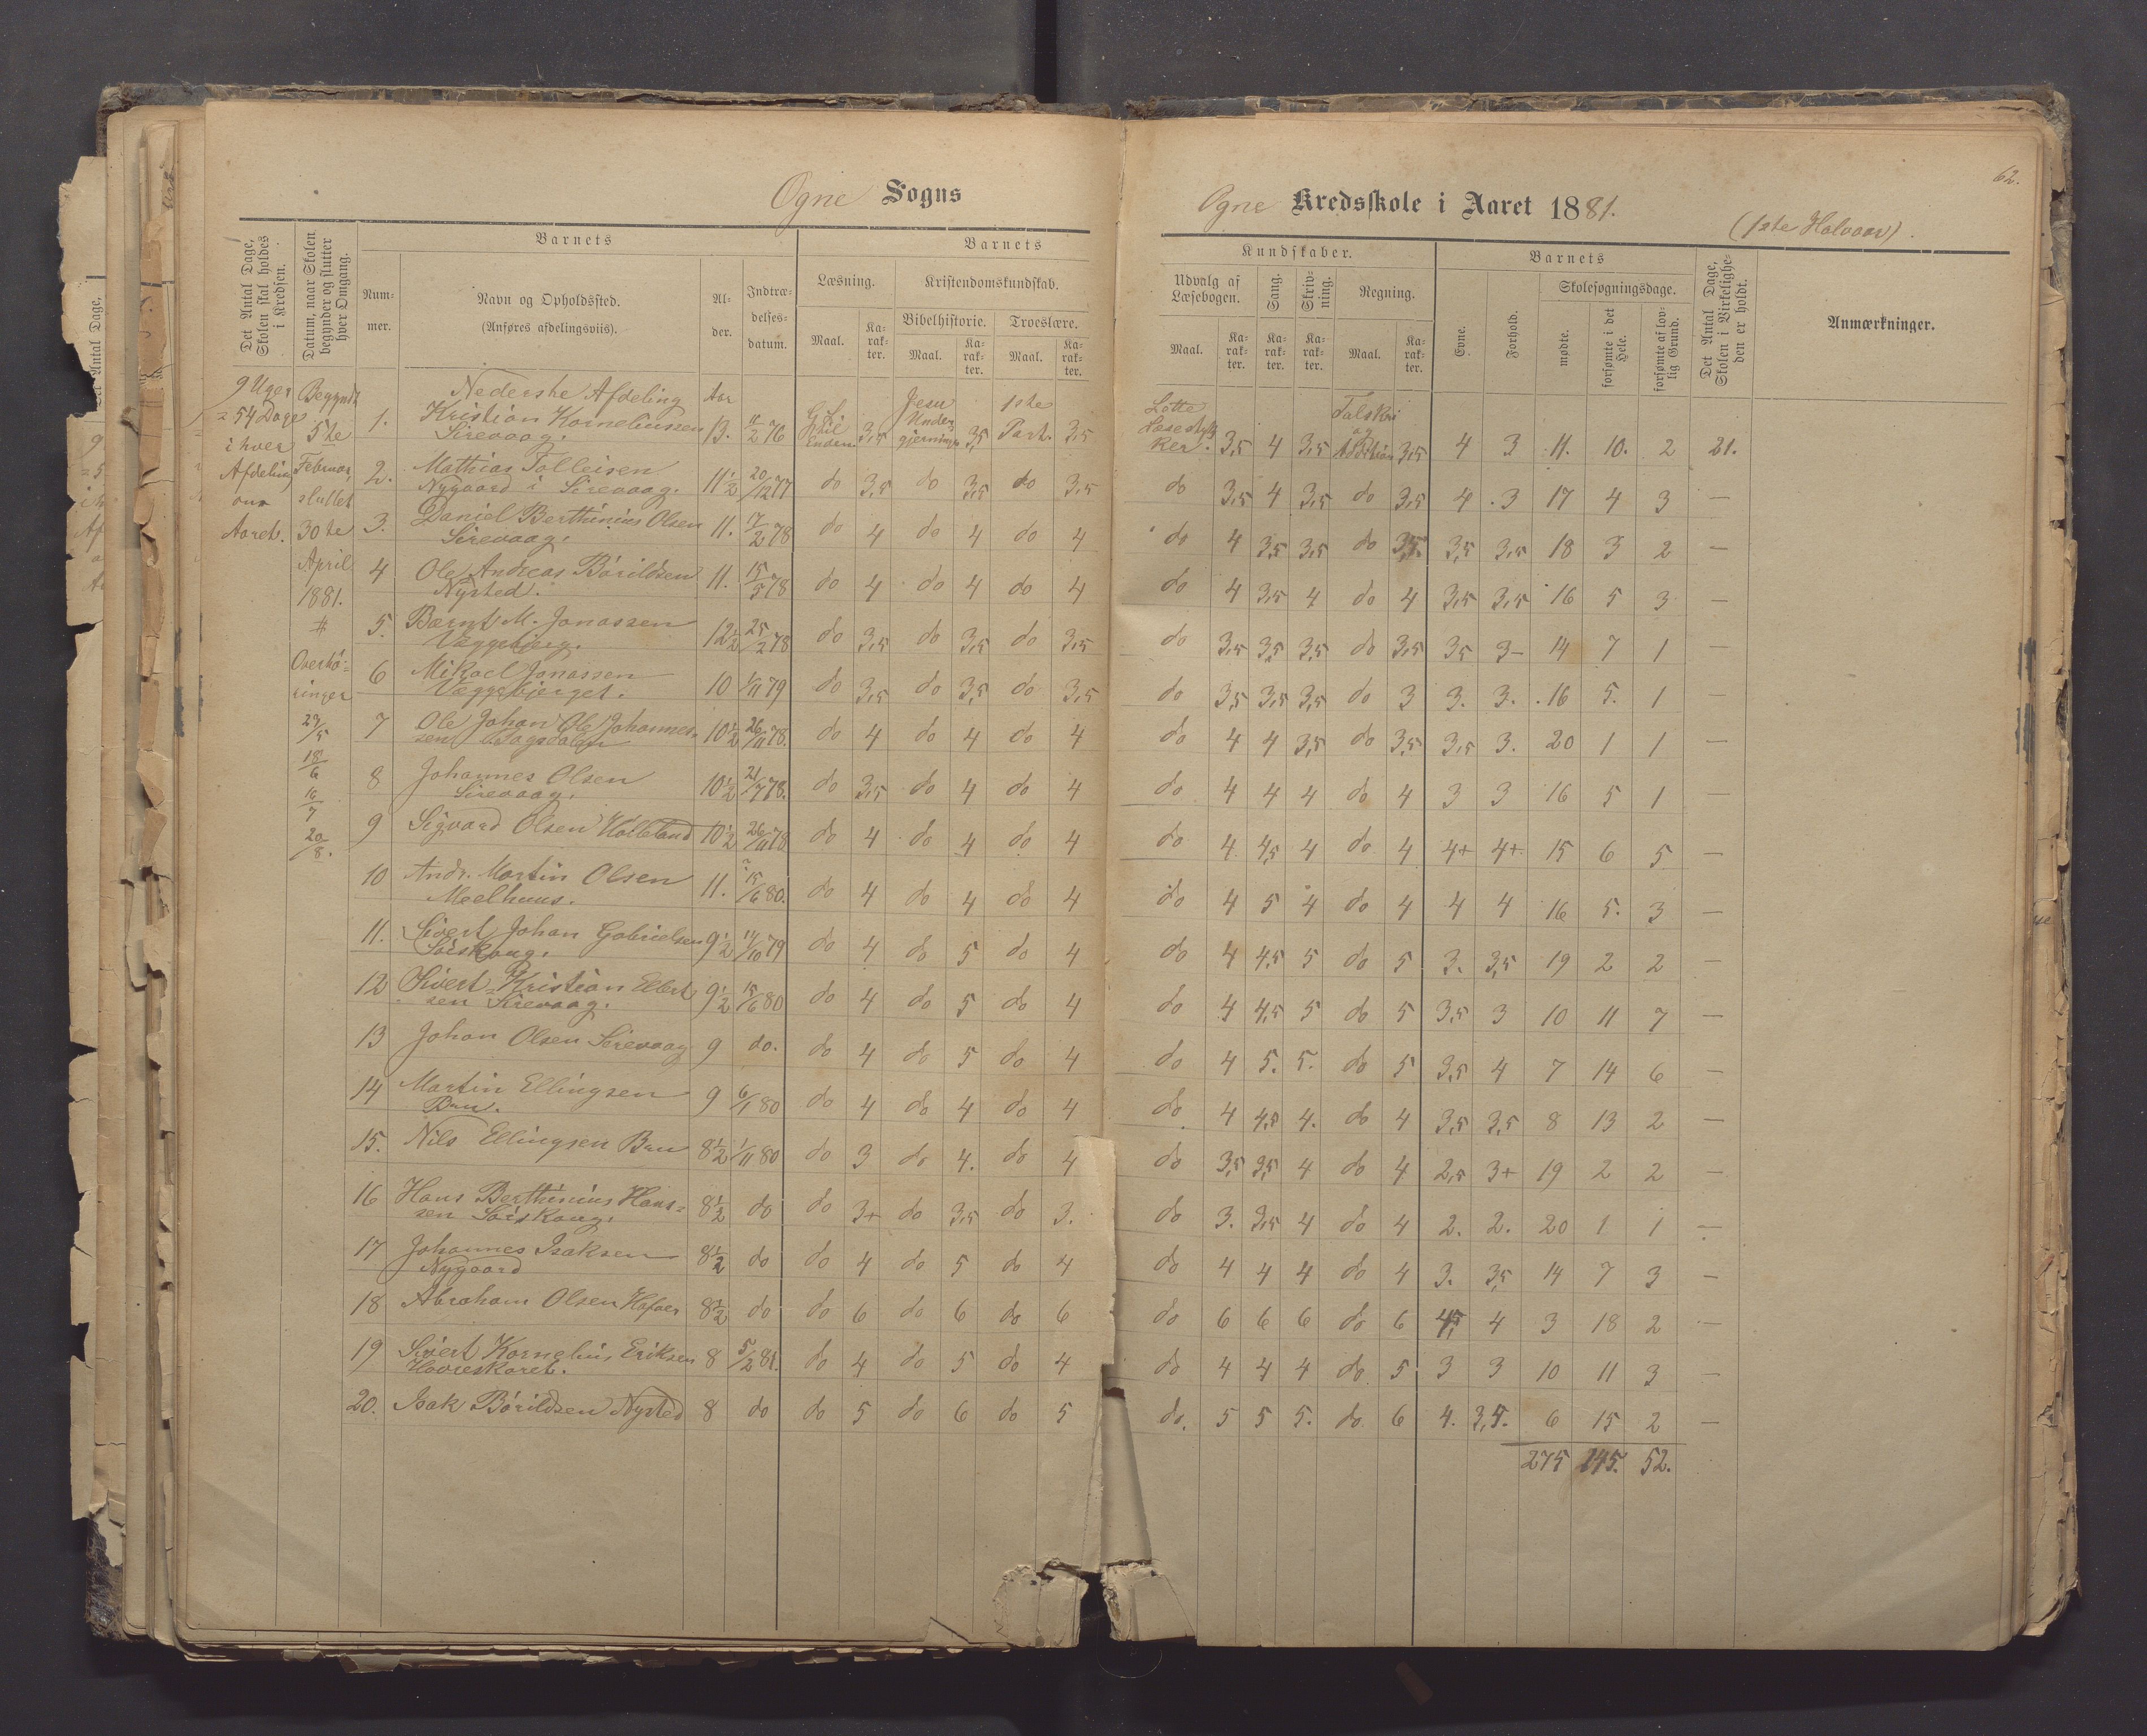 Ogne Sogns
Ogne Kredsskole i Aaret 1881.
(1ste Halvaar).
62.
Det Antal Dage, Skolen skal holdes i Kredsen.
Datum, naar Skolen begynder og slutter hver Omgang.
Barnets
Num-mer.
Navn og Opholdssted. (Anføres afdelingsviis).
Al-der.
Indtræ-delses-datum.
Barnets
Læsning.
Maal. Ka-rak-ter.
Kristendomskundskab.
Bibelhistorie. Troeslære.
Maal. Ka-rak-ter. Maal. Ka-rak-ter.
Kundskaber.
Udvalg af Læsebogen. Sang. Skriv-ning. Regning.
Maal. Ka-rak-ter. Ka-rak-ter. Ka-rak-ter. Maal. Ka-rak-ter.
Barnets
Evne. Forhold.
Skolesøgningsdage.
mødte. forsømte i det Hele. forsømte af lov-lig Grund.
Det Antal Dage, Skolen i Virkelighe-den er holdt.
Anmærkninger.
9 Uger
= 54 Dage
i hver
Afdeling
om
Aaret.
Begyndt
5te
Februar,
sluttet
30te
April
1881.
#
Overhö=
ringer
18/6
16/7
20/8.
Nederste Afdeling Aar
1. Kristian Korneliussen Sirevaag. 13. 11/2 76 3,5 Jesu Under gjerninger 3,5 1ste Part. 3,5 Lette Læsestyk ker. 3,5 4 3,5 Talskr. og Addition 3,5 4 3 11. 10. 2 21.
2. Mathias Tolleisen Nygaard i Sirevaag. 11 1/2 20/12 77 do 3,5 do 3,5 do 3,5 do 3,5 4 3,5 do 3,5 4 3 17 4 3 —
3. Daniel Berthinius Olsen Sirevaag. 11. 17/2 78 do 4 do 4 do 4 do 4 3,5 3,5 do 3,5 3,5 3,5 18 3 2 —
4 Ole Andreas Börildsen Nysted. 11. 15/5 78 do 4 do 4 do 4 do 4 3,5 4 do 4 3,5 3,5 16 5 3 —
5. Bærnt M. Jonassen Væggebjerg. 12 1/2 25/2 78 do 3,5 do 3,5 do 3,5 do 3,5 3,5 3,5 do 3,5 3,5 3- 14 7 1 —
6 Mikael Jonassen Væggebjerget. 10 1/11 79 do 3,5 do 3,5 do 3,5 do 3,5 3,5 3,5 do 3 3. 3. 16 5. 1 —
7 Ole Johan Ole Johannes= sen 10 1/2 26/11 78. do 4 do 4 do 4 do 4 4 3,5 do 3,5 3,5 3. 20 1 1 —
8 Johannes Olsen Sirevaag. 10 1/2 21/7 78. do 3,5 do 4 do 4 do 4 4 4 do 4 3 3 16 5 1 —
9 Sigvard Olsen Hölleland 10 1/2 26/11 78 do 4 do 4 do 4 do 4 4,5 4 do 4 4+ 4+ 15 6 5 —
10 Andr. Martin Olsen Meelhuus. 11. 15/6 80. do 4 do 4 do 4 do 4 5 4 do 4 4 4 16 5. 3 —
11. Sivert Johan Gabrielsen 9 1/2 11/10 79 do 4 do 5 do 4 do 4 4,5 5 do 5 3. 3,5 19 2 2 —
12 Sivert Kristian Elbert sen Sirevaag. 9 1/2 15/6 80 do 4 do 5 do 4 do 4 4,5 5 do 5 3,5 3 10 11 7 —
13 Johan Olsen Sirevaag 9 do. do 4 do 5 do 4 do 4 5. 5. do 5 3,5 4 7 14 6 —
14 Martin Ellingsen Bru. 9 6/1 80 do 4 do 4 do 4 do 4 4,5 4. do 4 3,5 3,5 8 13 2 —
15. Nils Ellingsen Bru 8 1/2 1/11 80 do 3 do 4. do 4 do 3,5 3,5 4 do 4 2,5 3+ 19 2 2 —
16 Hans Berthinius Hans= sen 8 1/2 do do 3+ do 3,5 do 3. do 3. 3,5 4 do 4 2. 2. 20 1 1 —
17 Johannes Isaksen Nygaard 8 1/2 do do 4 do 5 do 4 do 4 4 4 do 4 3. 3,5 14 7 3 —
18 Abraham Olsen 8 1/2 do do 6 do 6 do 6 do 6 6 6 do 6 4,5 4 3 18 2 —
19 Sivert Kornelius Eriksen Havreskaret. 8 5/2 81. do 4 do 5 do 4 do 4 4 4 do 5 3 3 10 11 3 —
20. Isak Börildsen Nysted 8 do do 5 do 6 do 5 do. 5 5 5. do 6 4. 3,5. 6 15 2 —
275 145. 52.